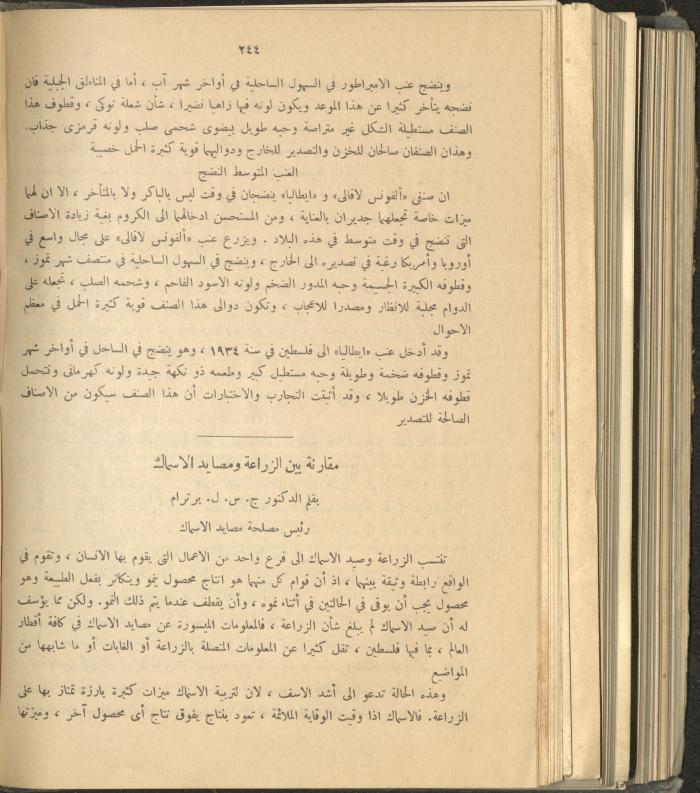 ٢٤٤
وينضج عنب الامبراطور في السهول الساحلية في أواخر شهر آب ، أما في المناطق الجبلية فان
نضجه يتأخر كثيرا عن هذا الموعد ويكون لونه فيها زاهيا نضيرا ، شأن شعلة توكى ، وقطوف هذا
الصنف مستطيلة الشكل غير متراصة وحبه طويل بيضوى شحمى صلب ولونه قرمزى جذاب.
وهذان الصنفان صالحان للخزن والتصدير للخارج ودواليهما قوية كثيرة الحمل خصيبة
العنب المتوسط النضج
ان صنفي «ألفونس لافالى» و «ايطاليا» ينضجان في وقت ليس بالباكر ولا بالمتأخر ، الا ان لهما
ميزات خاصة تجعلهما جديران بالعناية ، ومن المستحسن ادخالهما الى الكروم بغية زيادة الاصناف
التى تنضج في وقت متوسط في هذه البلاد . ويزرع عنب «ألفونس لافالى» على مجال واسع في
أوروبا وأمريكا رغبة في تصديره الى الخارج ، وينضج في السهول الساحلية في منتصف شهر تموز ،
وقطوفه الكبيرة الجسيمة وحبه المدور الضخم ولونه الاسود الفاحم ، وشحمه الصلب ، تجعله على
الدوام مجلبة للانظار ومصدرا للاعجاب ، وتكون دوالى هذا الصنف قوية كثيرة الحمل في معظم
الاحوال
وقد أدخل عنب «ايطاليا» الى فلسطين في سنة ١٩٣٤ ، وهو ينضج في الساحل في أواخر شهر
تموز وقطوفه ضخمة وطويلة وحبه مستطيل كبير وطعمه ذو نكهة جيدة ولونه كهرمانى وتتحمل
قطوفه الخزن طويلا ، وقد أثبتت التجارب والاختبارات أن هذا الصنف سيكون من الاصناف
الصالحة للتصدير
مقارنة بين الزراعة ومصايد الاسماك
بقلم الدكتور ج. س. ل. برترام
رئيس مصلحة مصايد الاسماك
تنتسب الزراعة وصيد الاسماك الى فرع واحد من الاعمال التى يقوم بها الانسان ، وتقوم في
الواقع رابطة وثيقة بينهما ، اذ أن قوام كل منهما هو انتاج محصول ينمو ويتكاثر بفعل الطبيعة وهو
محصول يجب أن يوقى في الحالتين في أثناء نموه ، وأن يقطف عندما يتم ذلك النمو. ولكن مما يؤسف
له أن صيد الاسماك لم يبلغ شأن الزراعة ، فالمعلومات الميسورة عن مصايد الاسماك في كافة أقطار
العالم ، بما فيها فلسطين ، تقل كثيرا عن المعلومات المتصلة بالزراعة أو الغابات أو ما شابهها من
المواضيع
وهذه الحالة تدعو الى أشد الاسف ، لان لتربية الاسماك ميزات كثيرة بارزة تمتاز بها على
الزراعة. فالاسماك اذا وقيت الوقاية الملائمة ، تعود بنتاج يفوق نتاج أى محصول آخر ، وميزتها